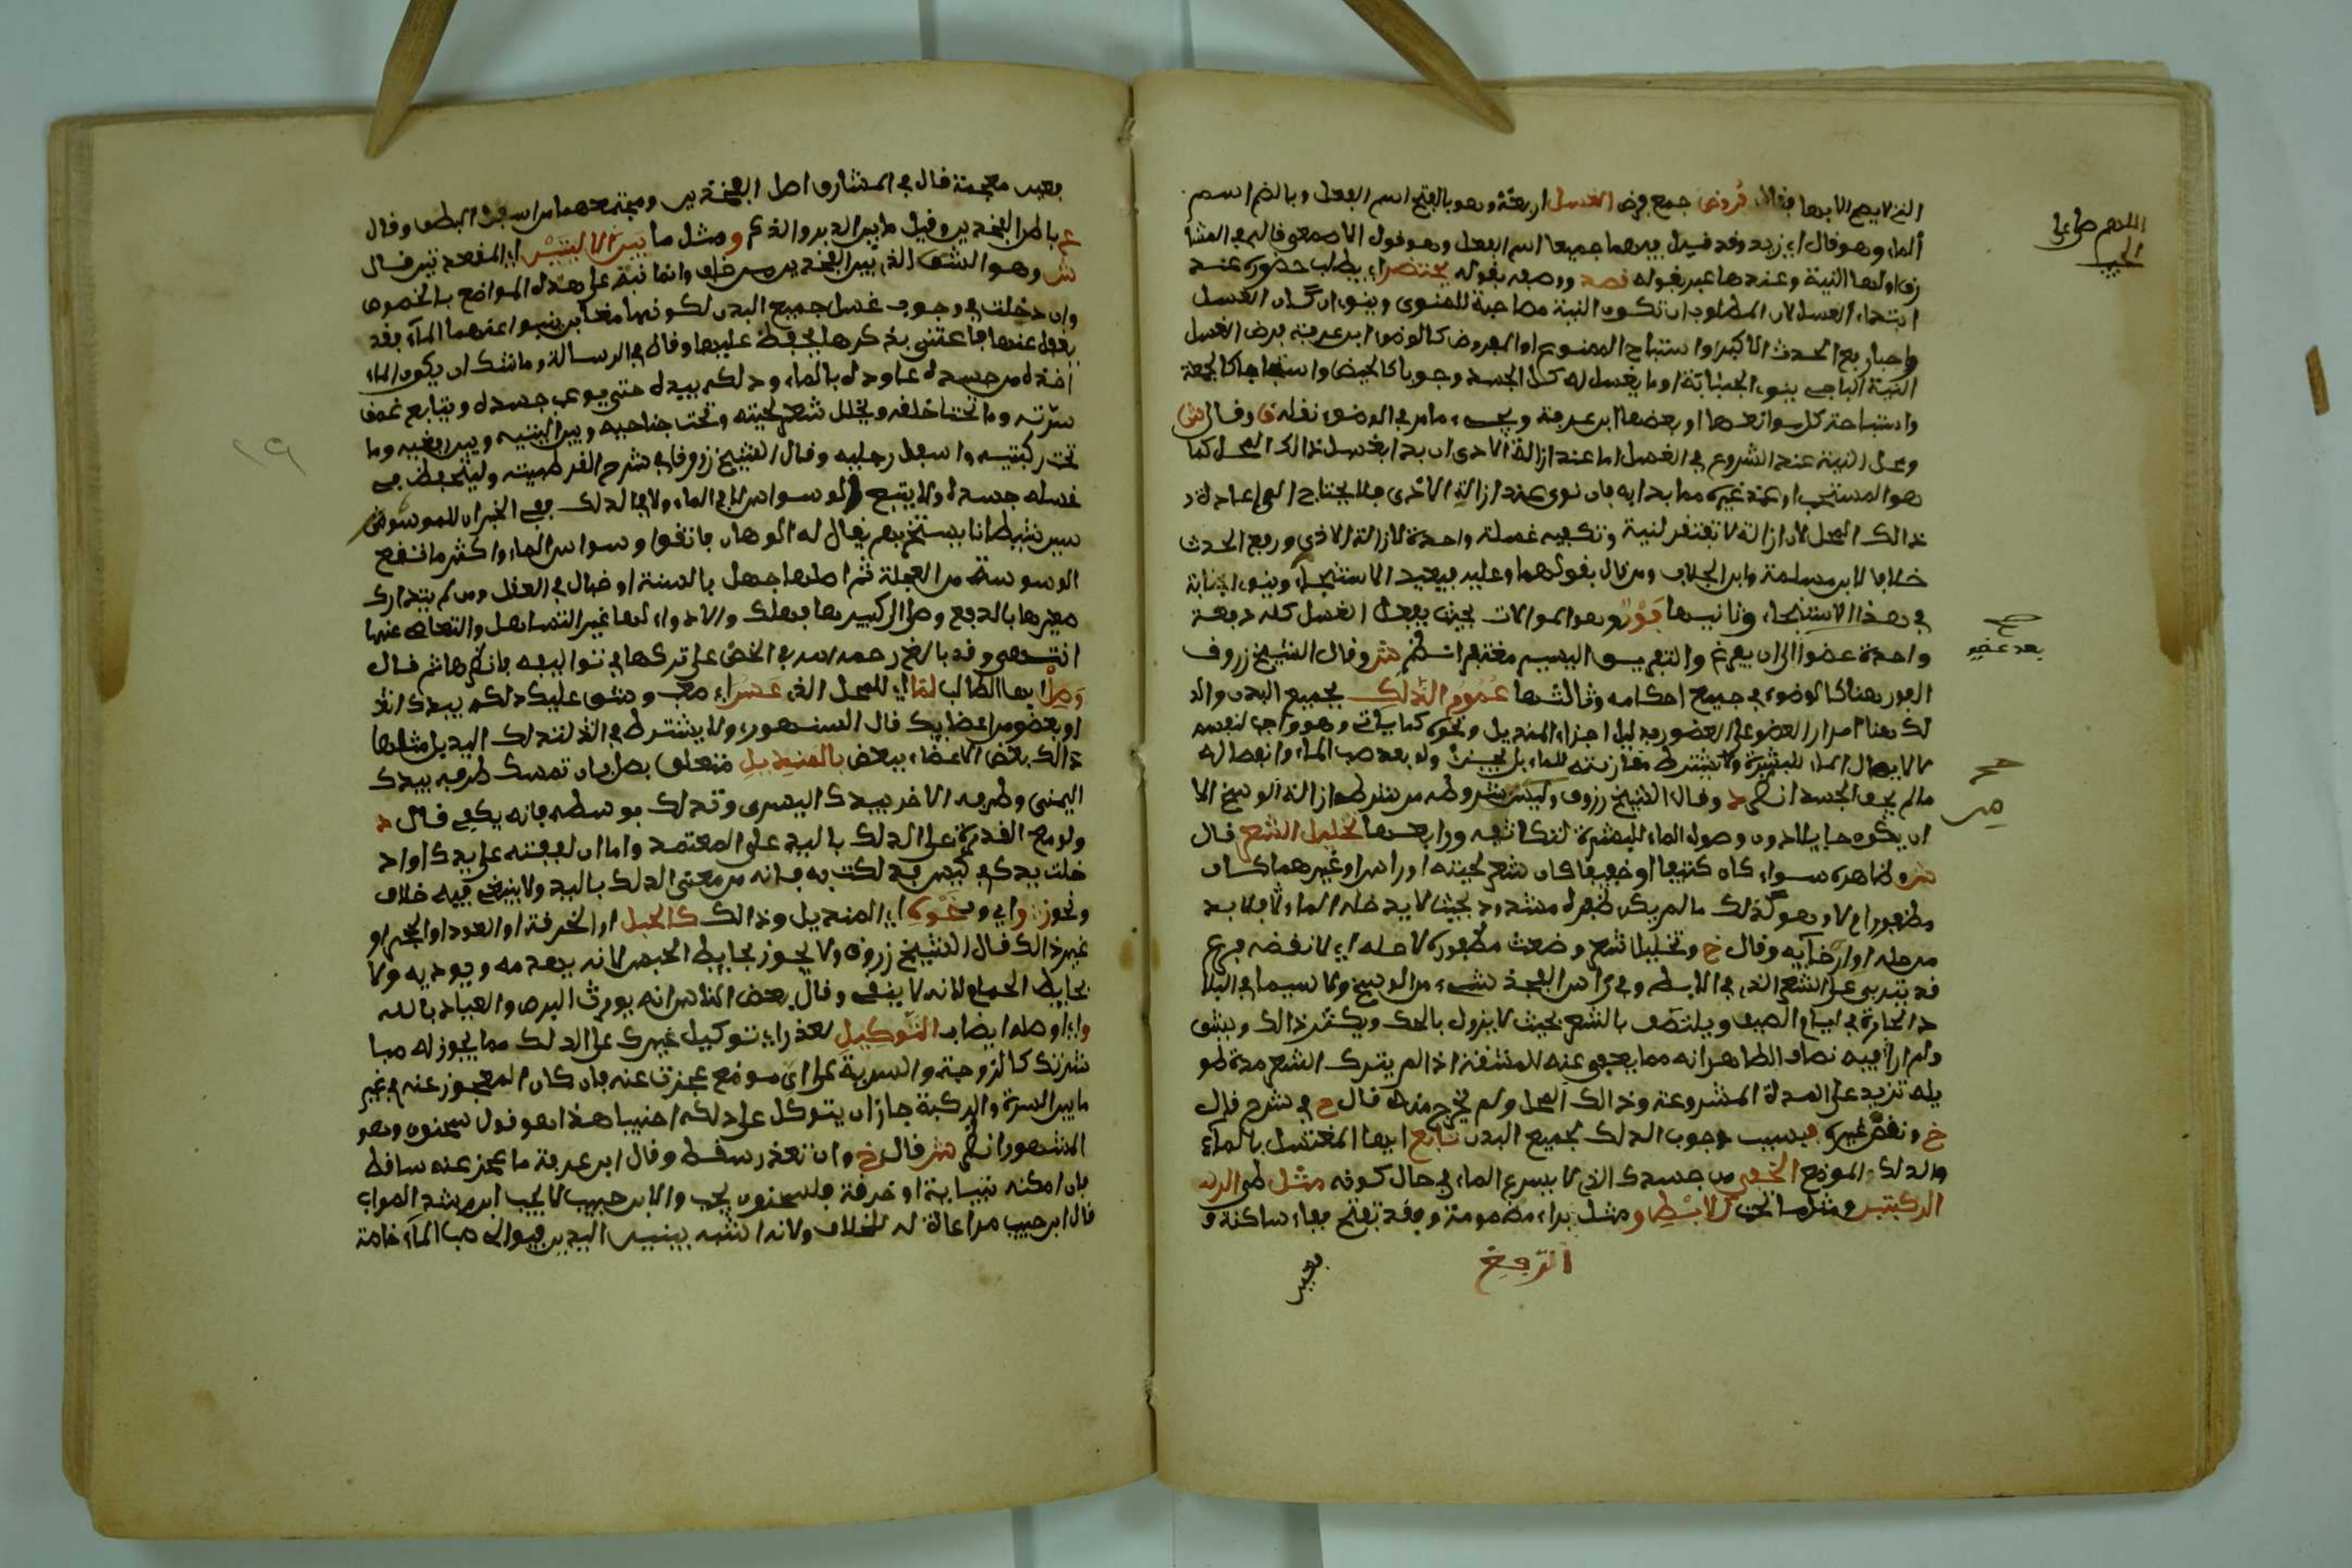 اللهم صل على
الحبيب
التي لا يصح الا بها فقال فروض جمع فرض الغسل اربعة وهو بالفتح اسم الفعل وبالضم اسم
الماء وهو قال ابو زيد وقد قيل فيهما جميعا اسم الفعل وهو قول الاصمعي قاله في المشا
رق اولها النية وعندها عبر بقوله قصد ووصفه بقوله يحتضر اي يطلب حضوره عند
ابتداء الغسل لان المطلوب ان تكون النية مصاحبة للمنوي وينوي ان كان الغسل
واجبا رفع الحدث الاكبر او استباح الممنوع او المفروض كالوضوء ابن عرفة فرض الغسل
النية الباجي ينوي الجنابة او ما يغسل له كل الجسد وجوبا كالحيض واستحبابا كالجمعة
واستباحة كل موانعها او بعضها ابن عرفة ويجيء ما مر في الوضوء نقله ق وقال ش
ومحل النية عند الشروع في الغسل اما عند ازالة الاذى ان بدا بغسل ذالك المحل كما
هو المستحب او عند غيره مما بدا به فان نوى عند ازالة الاذى فلا يحتاج الى اعادة
ذالك المحل لان ازالة لا تفتقر لنية وتكفيه غسلة واحدة لازالة الاذى ورفع الحدث
خلافا لابن مسلمة وابن الجلاب ومن قال بقولهما وعليه فيعيد الاستنجاء وينوي الجنابة
في هذا الاستنجاء وثانيها فور وهو الموالات بحيث يفعل الغسل كله دفعة
واحدة عضوا الى ان يفرغ والتفريق اليسير مغتفر انظر ش وقال الشيخ زروف
الفور هنا كالوضوء في جميع احكامه وثالثها عموم الدلك بجميع البدن والد
لك هنا امرار العضو على العضو بدليل اجزاء المنديل ونحوه كما ياتي وهو واجب لنفسه
لا لايصال الماء للبشرة ولا يشترط مقارنته للماء بل يجزئ ولو بعد صب الماء وانفصاله
ما لم يجف الجسد انظر د وقال الشيخ زروف وليس من شروطه من شرطه ازالة الوسخ الا
ان يكون حايلا دون وصول الماء للبشرة لتكاثفه ورابعها تخليل الشعر قال
ش وظاهره سواء كان كثيفا او خفيفا كان شعر لحيته او راس او غيرهما كان
مظفورا ام لا وهو كذلك ما لم يكن ظفره مشدود بحيث لا يدخله الماء والا فلا بد
من حله او ارخايه وقال خ وتخليل شعر وضغث مظفوره لا حله اي لا نقضه فرع
قد يتربى على الشعر الذي في الابط وفي راس الفخذ شيء من الوسخ ولا سيما في البلا
د الحارة في ايام الصيف ويلتصق بالشعر بحيث لا يزول بالحك ويكثر ذالك ويشق
ولم ار فيه نصا والظاهر انه مما يعفى عنه للمشقة اذا لم يترك الشعر مدة طو
يلة تزيد على المدة المشروعة وذالك المحل ولم يخرج منه قال ح في شرح قول
خ ونقض غيره فبسبب وجوب الدلك لجميع البدن تابع ايها المغتسل بالماء
والدلك الموضع الخفي من جسدك الذي لا يسرع الماء في حال كونه مثل طي الد
الركبتين ومثل ما تحت الابط ومثل براء مضمومة وقد تفتح بفاء ساكنة و
الرفغ
بغين
صح
بعد عضو
بغين معجمة قال في المشارق اصل الفخذين ومجتمعهما من اسفل البطن وقال
ع باطن الفخذين وقيل ما بين الدبر والذكر ومثل ما بين الاليتين اي المقعدتين قال
ش وهو الشق الذي بين الفخذين من خلف وانما نبه على هذه المواضع بالخصوص
وان دخلت في وجوب غسل جميع البدن لكونها مغابن ينبوا عنها الماء فقد
يغفل عنها فاعتنى بذكرها ليحفظ عليها وقال في الرسالة وما شك ان يكون الماء
اخذه من جسده عاوده بالماء ودلكه بيده حتى يوعب جسده ويتابع عمق
سرته وما تحت حلقه ويخلل شعر لحيته وتحت جناحيه وبين اليتيه وبين رفغيه وما
تحت ركبتيه واسفل رجليه وقال الشيخ زروفا في شرح القرطبية وليتحفظ في
غسله جسده ولا يتبع الوسواس لا في الماء ولا في الدلك ففي الخبر ان للموسوس
شيطانا يستخر بهم يقال له الولهان فاتقوا وسواس الماء واكثر ما تقع
الوسوسة من العجلة ثم اصلها جهل بالسنة او خبال في العقل ومن لم يتدارك
انتهى وقد بالغ رحمه الله في الحض على تركها في تواليفه فانظرها ثم قال
وصل ايها الطالب لما اي للمحل الذي عسر اي صعب وشق عليك دلكه بيدك
او بعضو من اعضايك قال السنهوري ولا يشترط في الدلك اليد بل مثلها
ذالك بعض الاعضاء ببعض بالمنديل متعلق بصل بان تمسك طرفه بيدك
اليمنى وطرفه الاخر بيدك اليسرى وتدلك بوسطه فانه يكفي قال د
ولو مع القدرة على الدلك باليد على المعتمد واما ان لففته على يدك او اد
خلت يدك في كيس فدلكت به فانه من معنى الدلك باليد ولا ينبغي فيه خلاف
ونحوه اي المنديل وذالك كالحبل او الخرقة او العود او الحجر او
غير ذالك قال الشيخ زروق ولا يجوز بحايط الحبس لانه يهدمه ويوديه ولا
بحايط الحمام لانه لا ينقى وقال بعض الناس انه يورث البرص والعياذ بالله
واو صله ايضا بـ التوكيل لعذر اي توكيل غيرك على الدلك مما يجوز له مبا
شرتك كالزوجة والسرية على اي موضع عجزت عنه فان كان المعجوز عنه في غير
ما بين السرة والركبة جاز ان يتوكل على دلكه اجنبيا هذا هو قول سحنون وهو
المشهور انظر ش قال خ وان تعذر سقط وقال ابن عرفة ما عجز عنه ساقط
فان امكنه بنيابة او خرقة فلسحنون يجب والابن حبيب لا يجب ابن رشد الصواب
قال ابن حبيب مراعاة له للخلاف ولانه اشبه بيسر الدين فيوالي صب الماء خاصة
١٩